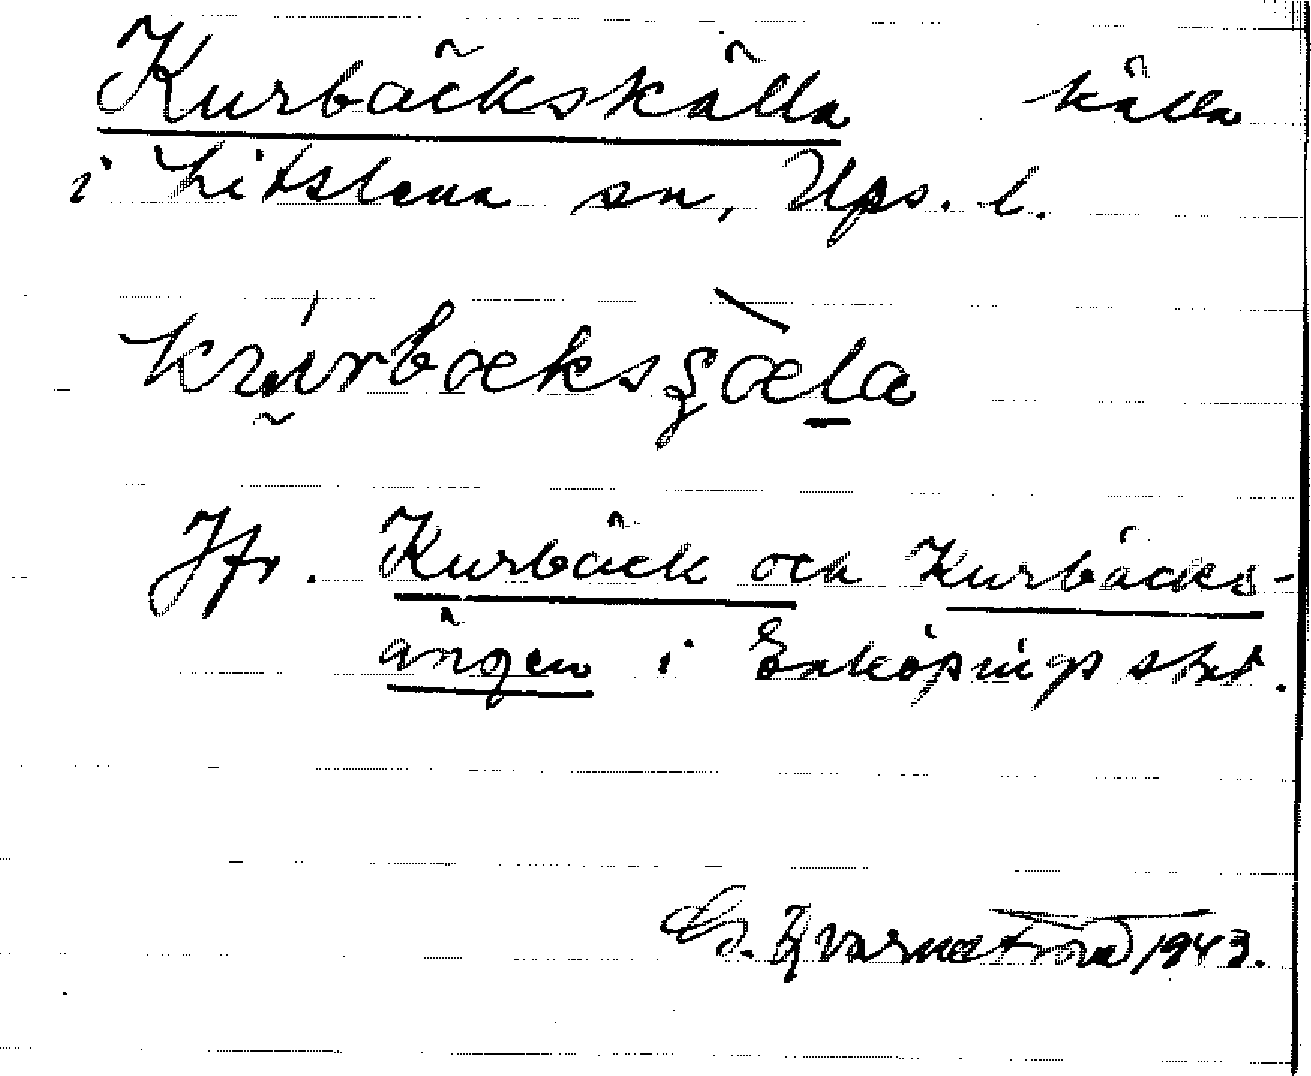 Kurbäckskälla källa
i Litslena sn, Ups. l.
Jfr. Kurbäck och Kurbäcks-
ängen i Enköpings std.
G. Kvarnström 1943.